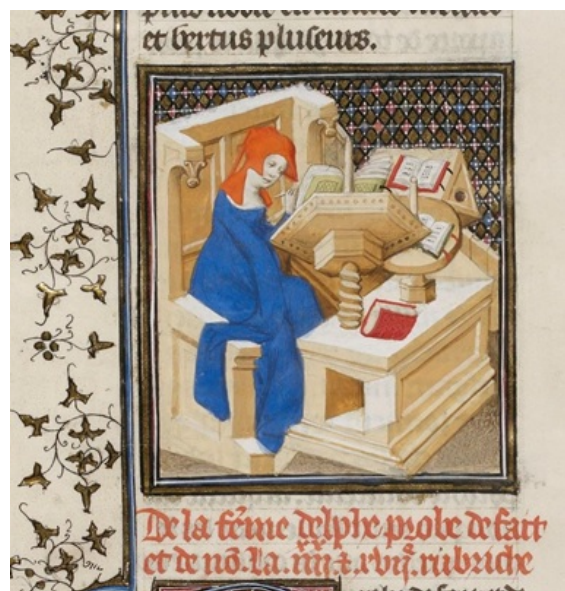 et vertus pluseurs.
De la fême adelphe probe de fait
et de nō. La .iiii.xx.xvii. rubriche